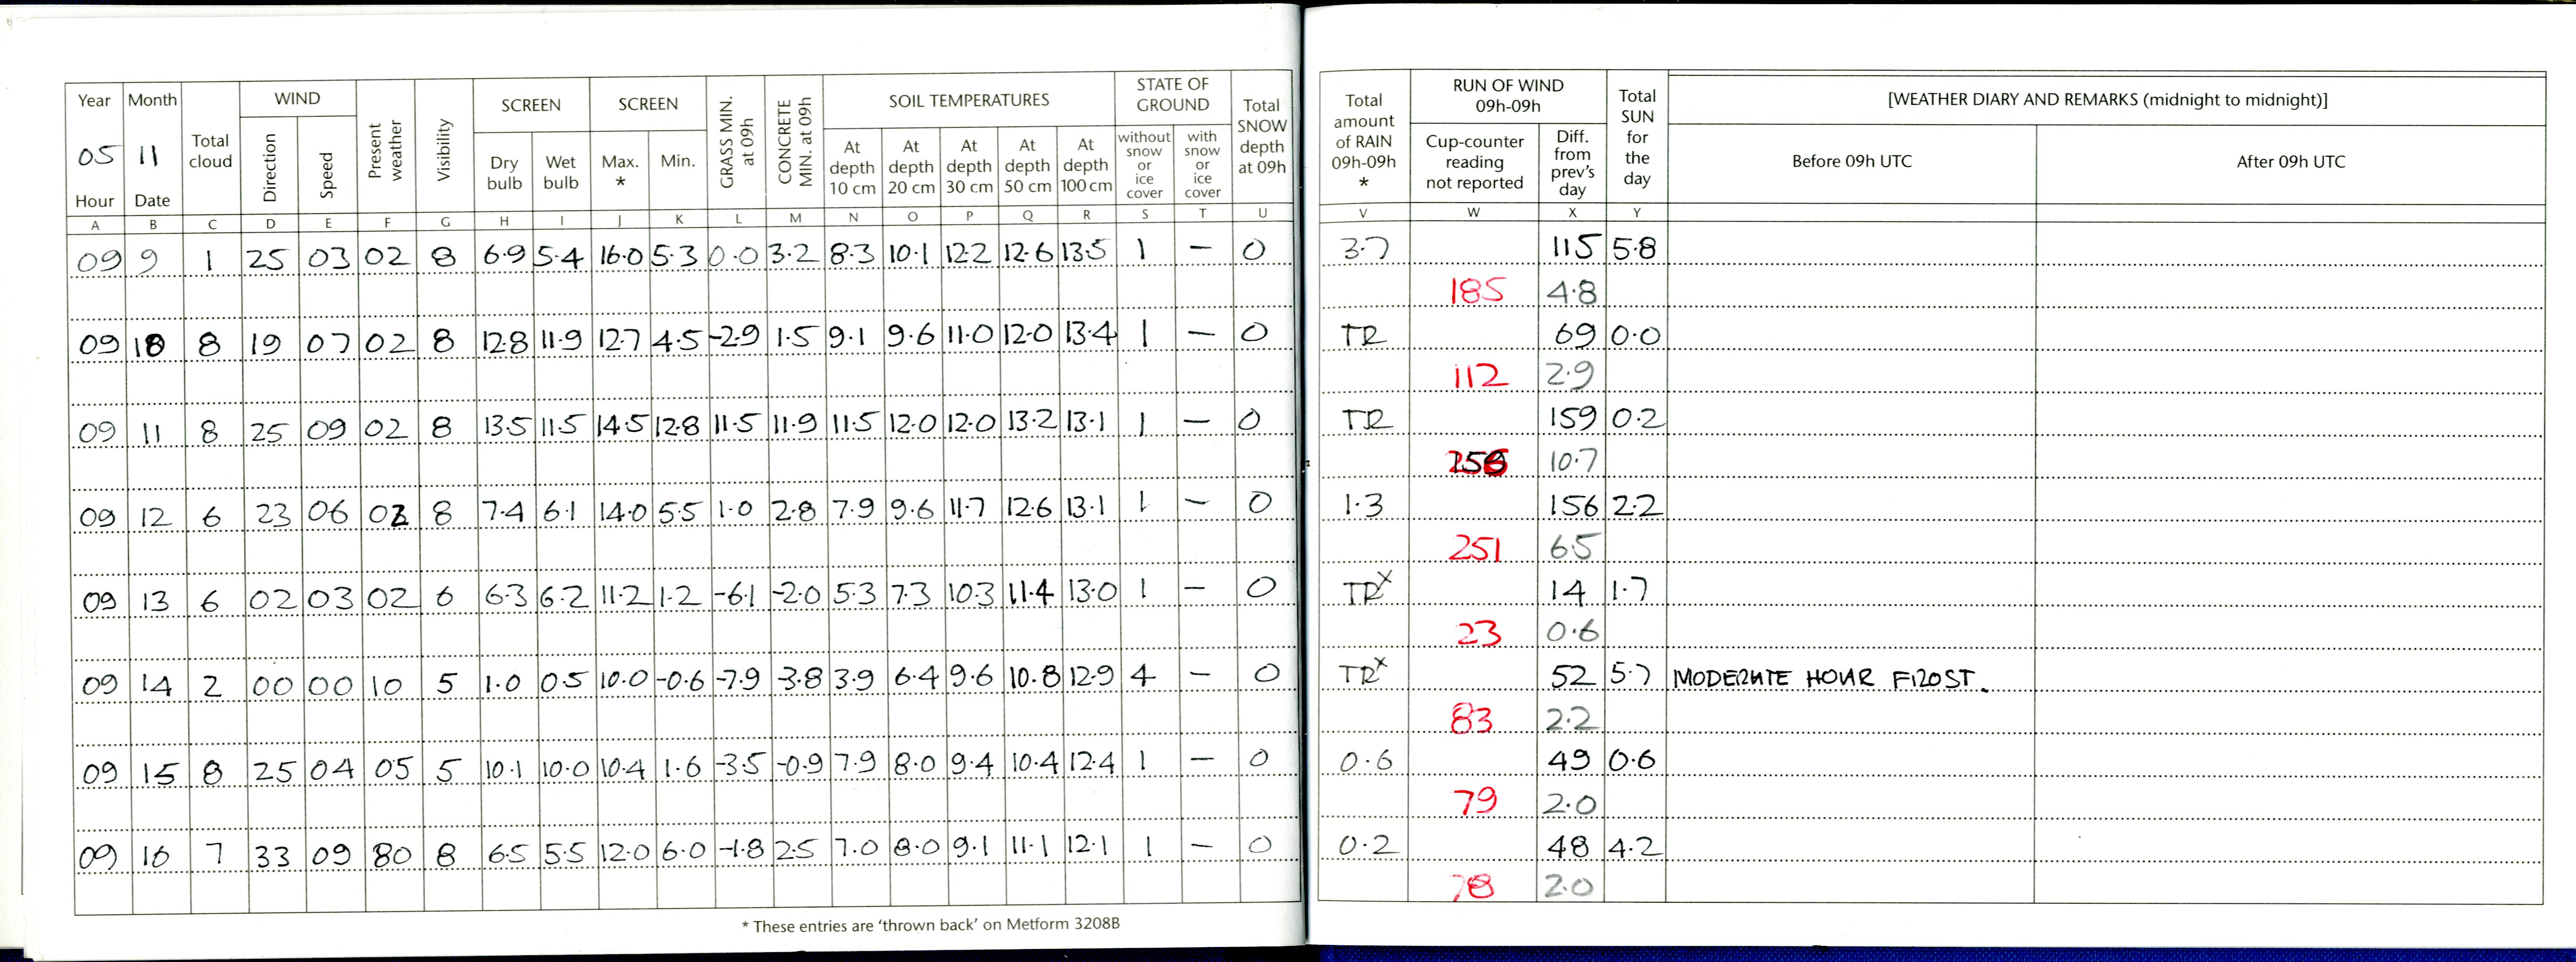 Year Month Total cloud WIND Present weather Visibility SCREEN SCREEN GRASS MIN. at 09h CONCRETE MIN. at 09h SOIL TEMPERATURES STATE OF GROUND Total SNOW depth at 09h Total amount of RAIN 09h-09h * RUN OF WIND 09h-09h Total SUN for the day [WEATHER DIARY AND REMARKS (midnight to midnight)]
05 11 Direction Speed Dry bulb Wet bulb Max. * Min. At depth 10 cm At depth 20 cm At depth 30 cm At depth 50 cm At depth 100 cm without snow or ice cover with snow or ice cover Cup-counter reading not reported Diff. from prev's day Before 09h UTC After 09h UTC
Hour Date
A B C D E F G H I J K L M N O P Q R S T U V W X Y
09 9 1 25 03 02 8 6.9 5.4 16.0 5.3 0.0 3.2 8.3 10.1 12.2 12.6 13.5 1 — 0 3.7 115 5.8
185 4.8
09 10 8 19 07 02 8 12.8 11.9 12.7 4.5 -2.9 1.5 9.1 9.6 11.0 12.0 13.4 1 — 0 TR 69 0.0
112 2.9
09 11 8 25 09 02 8 13.5 11.5 14.5 12.8 11.5 11.9 11.5 12.0 12.0 13.2 13.1 1 — 0 TR 159 0.2
10.7
09 12 6 23 06 02 8 7.4 6.1 14.0 5.5 1.0 2.8 7.9 9.6 11.7 12.6 13.1 1 — 0 1.3 156 2.2
251 6.5
09 13 6 02 03 02 6 6.3 6.2 11.2 1.2 -6.1 -2.0 5.3 7.3 10.3 11.4 13.0 1 — 0 TRx 14 1.7
23 0.6
09 14 2 00 00 10 5 1.0 0.5 10.0 -0.6 -7.9 -3.8 3.9 6.4 9.6 10.8 12.9 4 — 0 TRx 52 5.7 MODERATE HOAR FROST.
83 2.2
09 15 8 25 04 05 5 10.1 10.0 10.4 1.6 -3.5 -0.9 7.9 8.0 9.4 10.4 12.4 1 — 0 0.6 49 0.6
79 2.0
09 16 7 33 09 80 8 6.5 5.5 12.0 6.0 -1.8 2.5 7.0 8.0 9.1 11.1 12.1 1 — 0 0.2 48 4.2
78 2.0
* These entries are 'thrown back' on Metform 3208B